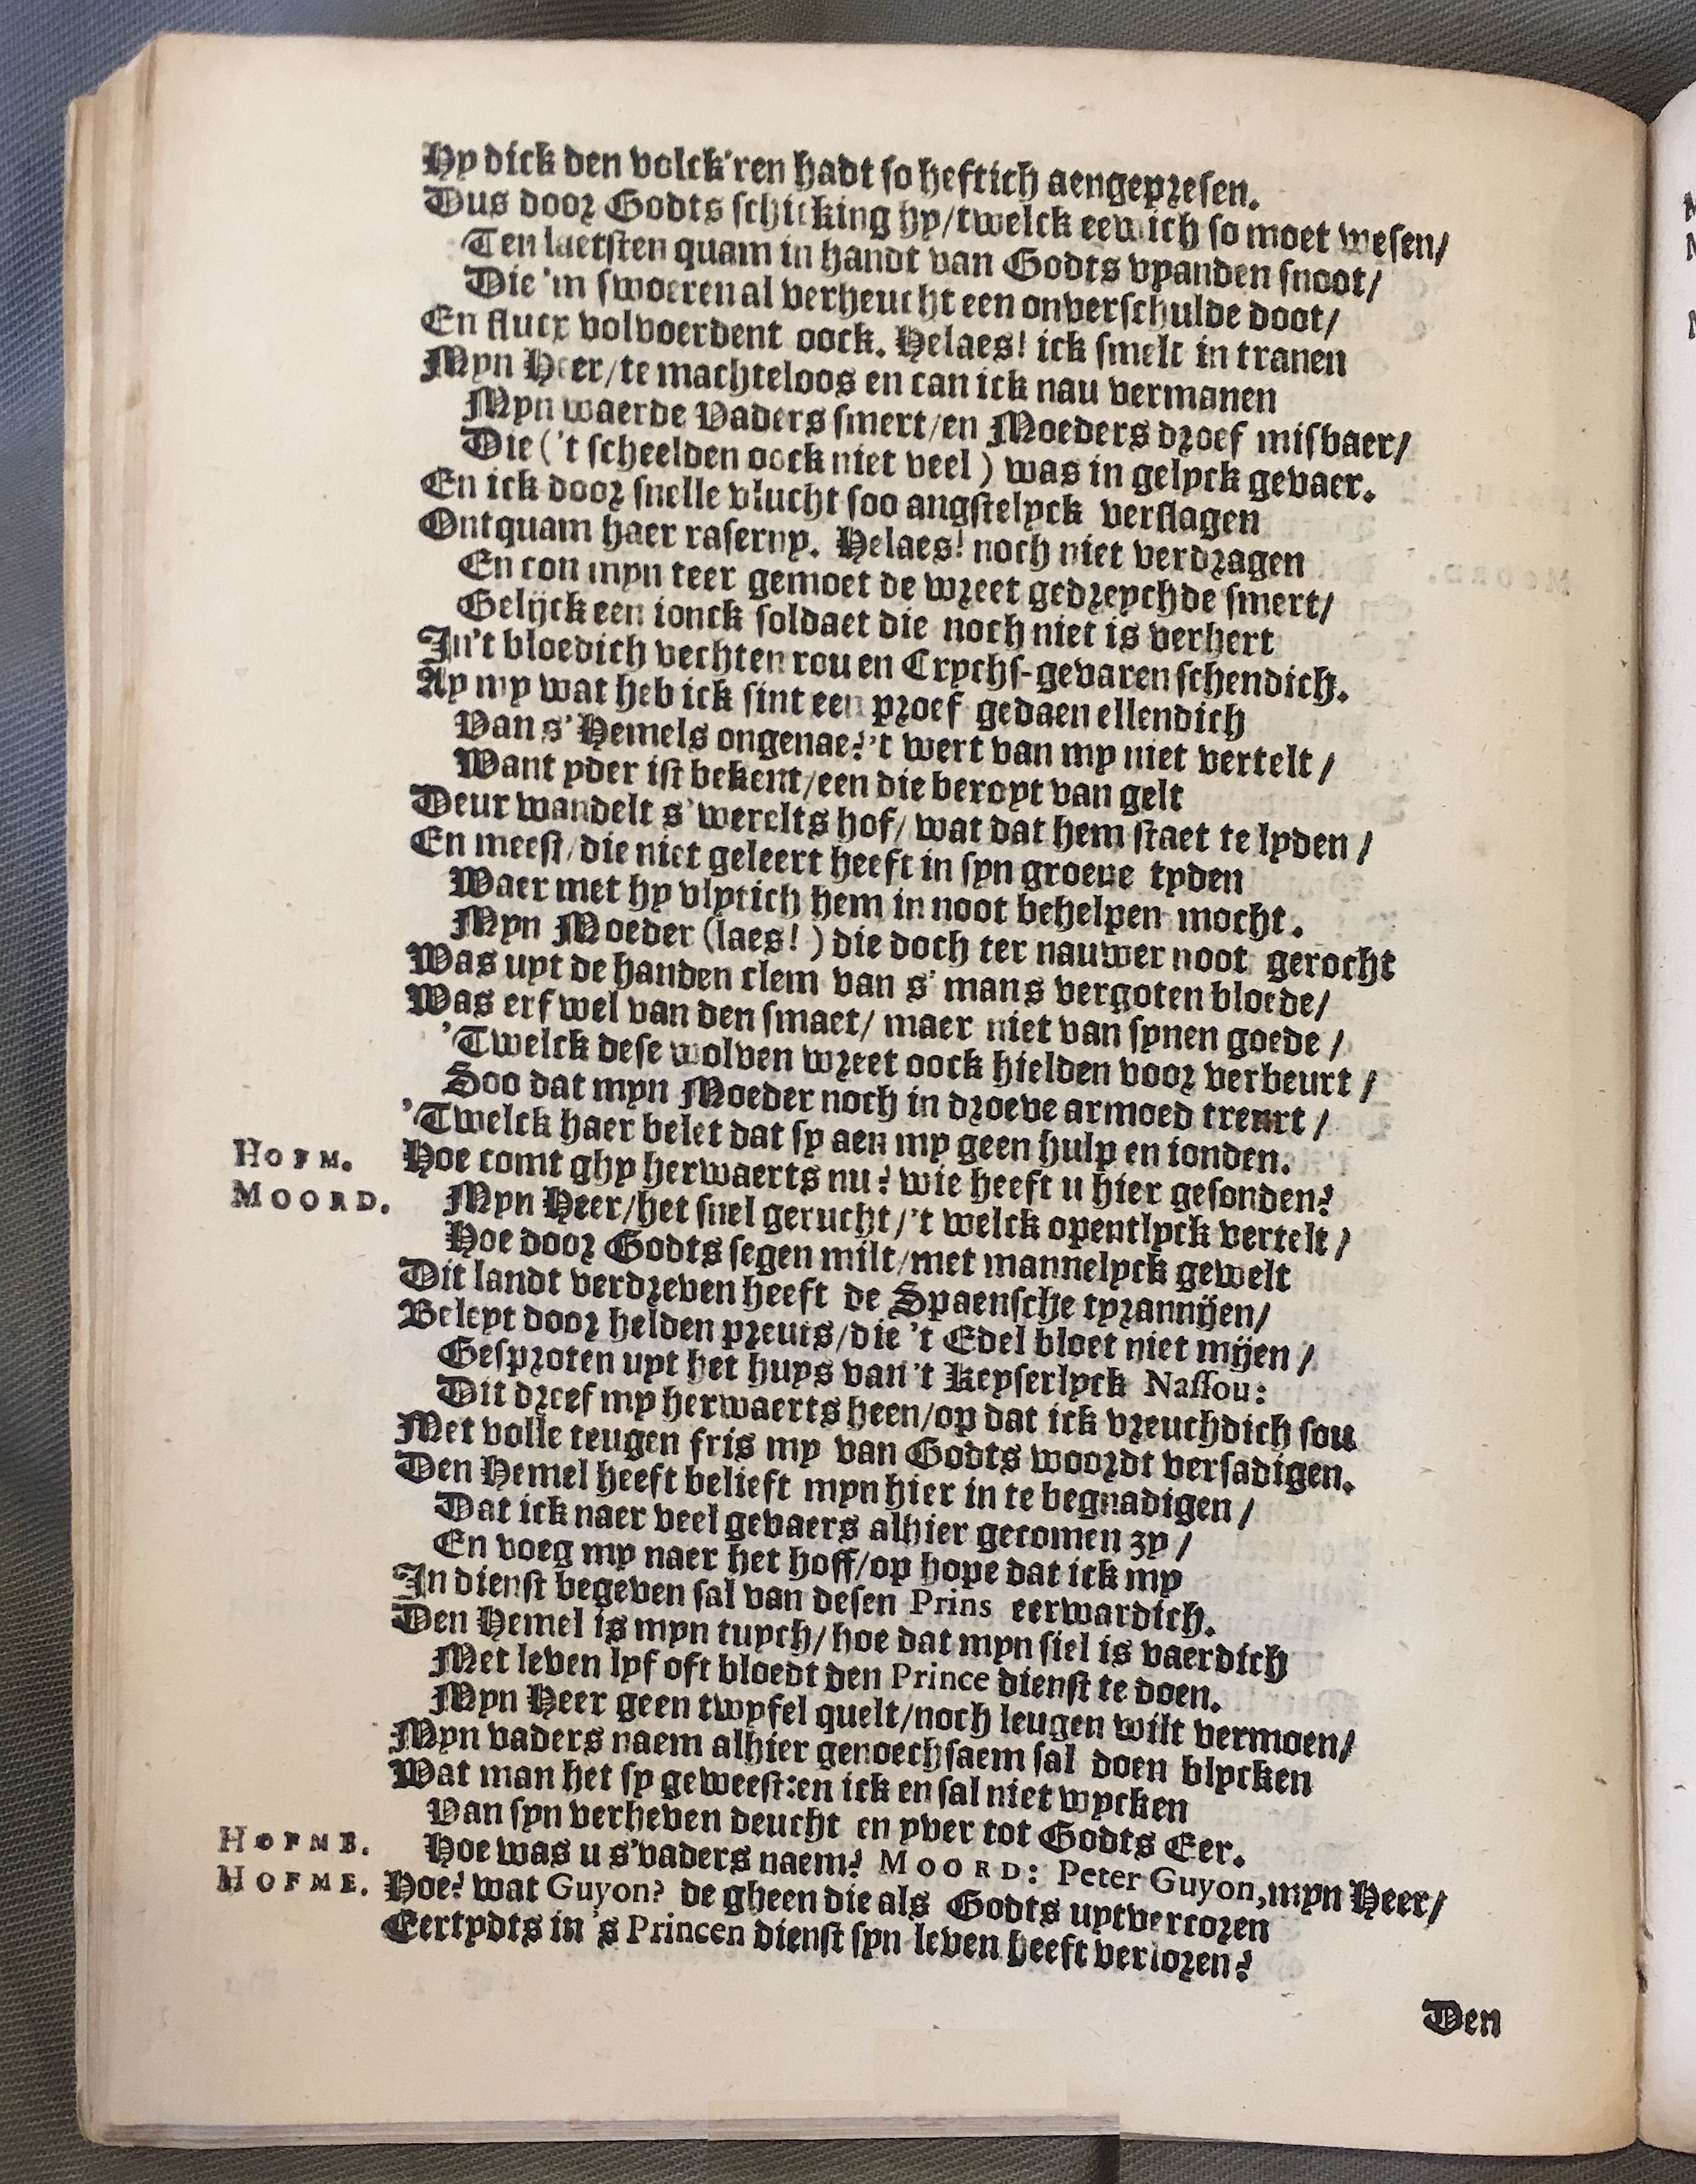 Hy dick den volck'ren hadt so heftich aengepresen.
Dus door Godts schicking hy/twelck eewich so moet wesen/
Ten laetsten quam in handt van Godts vyanden snoot/
Die 'm swoeren al verheucht een onverschulde doot/
En flucx volvoerdent oock. Helaes! ick smelt in tranen
Myn Heer/te machteloos en can ick nau vermanen
Myn waerde Vaders smert/en Moeders droef misbaer/
Die ('t scheelden oock niet veel) was in gelyck gevaer.
En ick door snelle vlucht soo angstelyck verslagen
Ontquam haer raserny. Helaes! noch niet verdragen
En con myn teer gemoet de wreet gedreychde smert/
Gelijck een ionck soldaet die noch niet is verhert
In't bloedich vechten rou en Crychs-gevaren schendich.
Ay my wat heb ick sint een proef gedaen ellendich
Van s'Hemels ongenae?'t wert van my niet vertelt/
Want yder ist bekent/een die beroyt van gelt
Deur wandelt s'werelts hof/wat dat hem staet te lyden/
En meest/die niet geleert heeft in syn groene tyden
Waer met hy vlytich hem in noot behelpen mocht.
Myn Moeder (laes!) die doch ter nauwer noot gerocht
Was uyt de handen clem van s'mans vergoten bloede/
Was erf wel van den smaet/maer niet van synen goede/
'Twelck dese wolven wreet oock hielden voor verbeurt/
Soo dat myn Moeder noch in droeve armoed treurt/
'Twelck haer belet dat sy aen my geen hulp en ionden.
HOFM. Hoe comt ghy herwaerts nu? wie heeft u hier gesonden?
MOORD. Myn Heer/het snel gerucht/'t welck opentlyck vertelt/
Hoe door Godts segen milt/met mannelyck gewelt
Dit landt verdreven heeft de Spaensche tyrannijen/
Beleyt door helden preuts/die 't Edel bloet niet mijen/
Gesproten uyt het huys van't Keyserlyck Nassou:
Dit dreef my herwaerts heen/op dat ick vreuchdich sou
Met volle teugen fris my van Godts woordt versadigen.
Den Hemel heeft belieft myn hier in te begnadigen/
Dat ick naer veel gevaers alhier gecomen zy/
En voeg my naer het hoff/op hope dat ick my
In dienst begeven sal van desen Prins eerwardich.
Den Hemel is myn tuych/hoe dat myn siel is vaerdich
Met leven lyf oft bloedt den Prince dienst te doen.
Myn Heer geen twyfel quelt/noch leugen wilt vermoen/
Myn vaders naem alhier genoechsaem sal doen blycken
Wat man het sy geweest:en ick en sal niet wycken
Van syn verheven deucht en yver tot Godts Eer.
HOFME. Hoe was u s'vaders naem? MOORD: Peter Guyon,myn Heer/
HOFME. Hoe? wat Guyon? de gheen die als Godts uytvercoren
Eertydts in 's Princen dienst syn leven heeft verloren?
Den